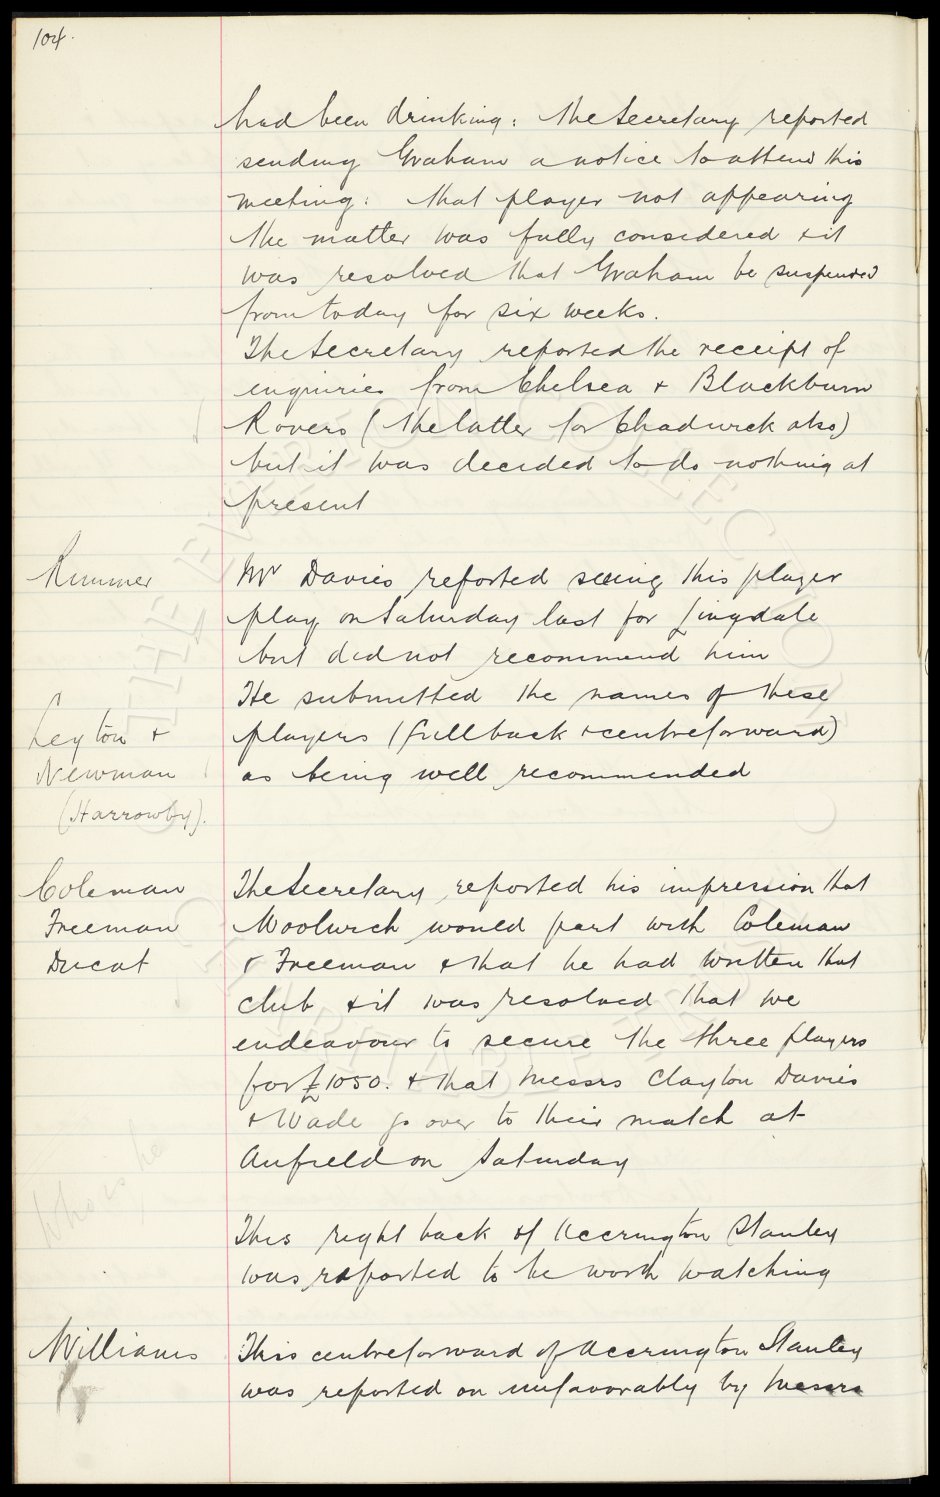 104.
had been drinking: the Secretary reported
sending Graham a notice to attend this
meeting: that player not appearing
the matter was fully considered & it
was resolved that Graham be suspended
from today for six weeks.
The Secretary reported the receipt of
enquiries from Chelsea & Blackburn
Rovers (the latter for Chadwick also)
but it was decided to do nothing at
present
Rimmer
Mr Davies reported seeing this player
play on Saturday last for Lingdale
but did not recommend him
Leyton &
Newman
(Harrowby).
He submitted the names of these
players (fullback & centreforward)
as being well recommended
Coleman
Freeman
Ducat
The Secretary reported his impression that
Woolwich would part with Coleman
& Freeman & that he had written that
club & it was resolved that we
endeavour to secure the three players
for £1050. & that Messrs Clayton Davies
& Wade go over to their match at
Anfield on Saturday
Who is he
This right back of Accrington Stanley
was reported to be worth watching
Williams
This centreforward of Accrington Stanley
was reported on unfavorably by Messrs
THE EVERTON COLLECTION
CHARITABLE TRUST